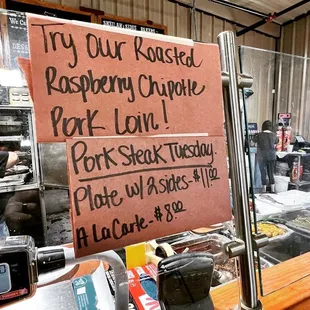 Try Our Roasted
Raspberry Chipotle
Pork Loin!
Pork Steak Tuesday
Plate w/ 2 sides - $11.00
A La Carte - $8.00